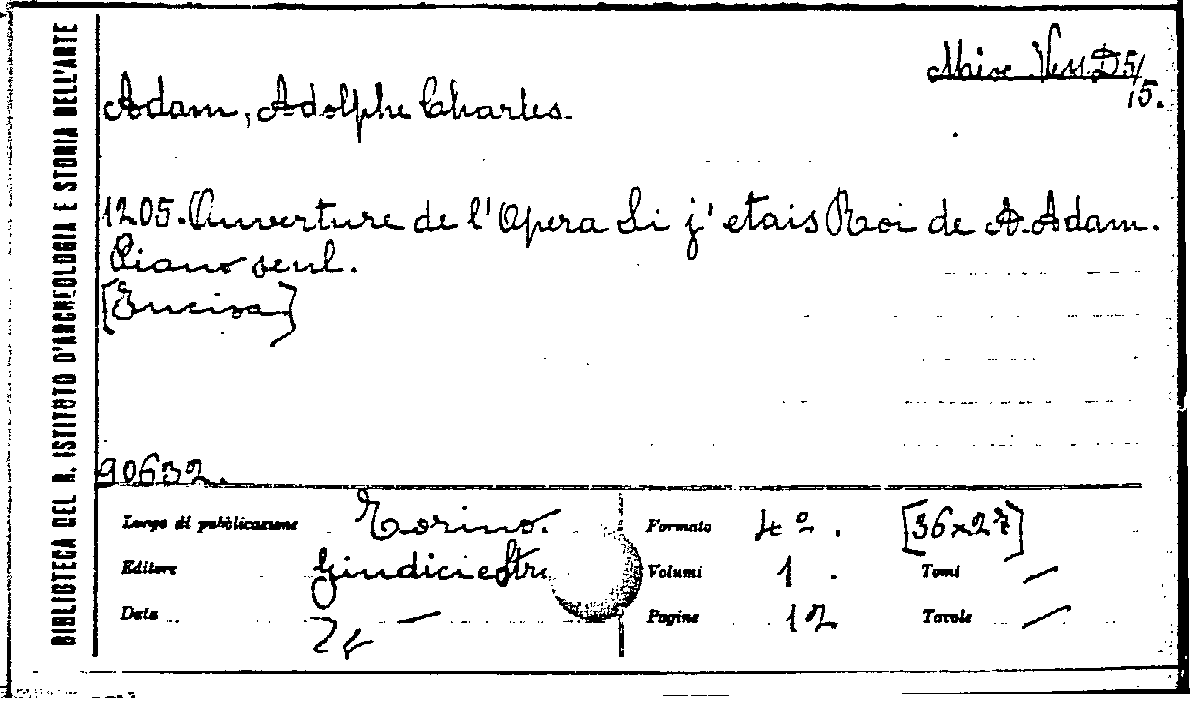 BIBLIOTECA DEL R. ISTITUTO D'ARCHEOLOGIA E STORIA DELL'ARTE
Misc. Vess. D5/
15.
Adam, Adolphe Charles.
1205. Ouverture de l'Opera Si j'etais Roi de A. Adam.
Piano seul.
[Incisa]
90632.
Luogo di pubblicazione Torino. Formato 4º. [36x27]
Editore Giudici e Stra Volumi 1. Tomi /
Data — Pagine 12 Tavole /